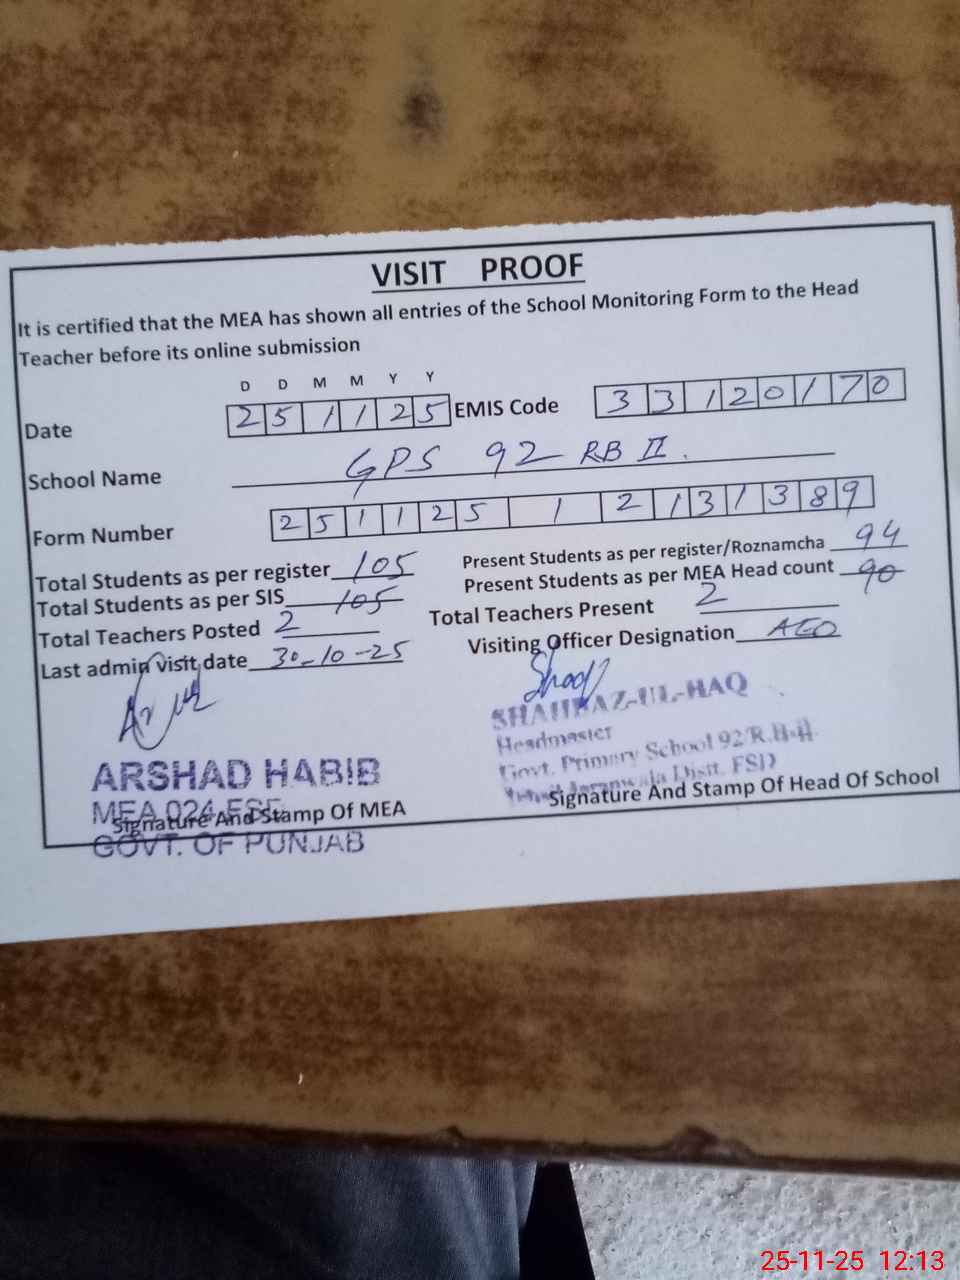 VISIT PROOF
It is certified that the MEA has shown all entries of the School Monitoring Form to the Head
Teacher before its online submission
D D M M Y Y
Date 251125 EMIS Code 33120170
School Name GPS 92 RB II.
Form Number 251125 1 2131389
Total Students as per register 105 Present Students as per register/Roznamcha 94
Total Students as per SIS 105 Present Students as per MEA Head count 90
Total Teachers Posted 2 Total Teachers Present 2
Last admin visit date 30-10-25 Visiting Officer Designation AEO
SHAHBAZ-UL-HAQ
Headmaster
Govt. Primary School 92/R.B-II
Jaranwala Distt. FSD
ARSHAD HABIB
MEA 024 FSD
GOVT. OF PUNJAB
Signature And Stamp Of MEA Signature And Stamp Of Head Of School
25-11-25 12:13